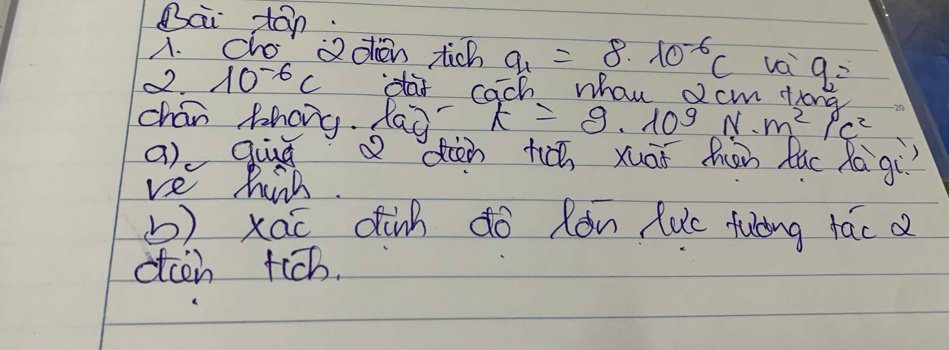 Bài tập.
1. Cho 2 điện tích q₁ = 8.10⁻⁶C và q₂ =
2.10⁻⁶C đặt cách nhau 2cm trong
chân không. lấy k = 9.10⁹ N.m²/c²
a) giữa 2 điện tích xuất hiện lực là gì?
vẽ hình.
b) xác định độ lớn lực tương tác 2
điện tích.